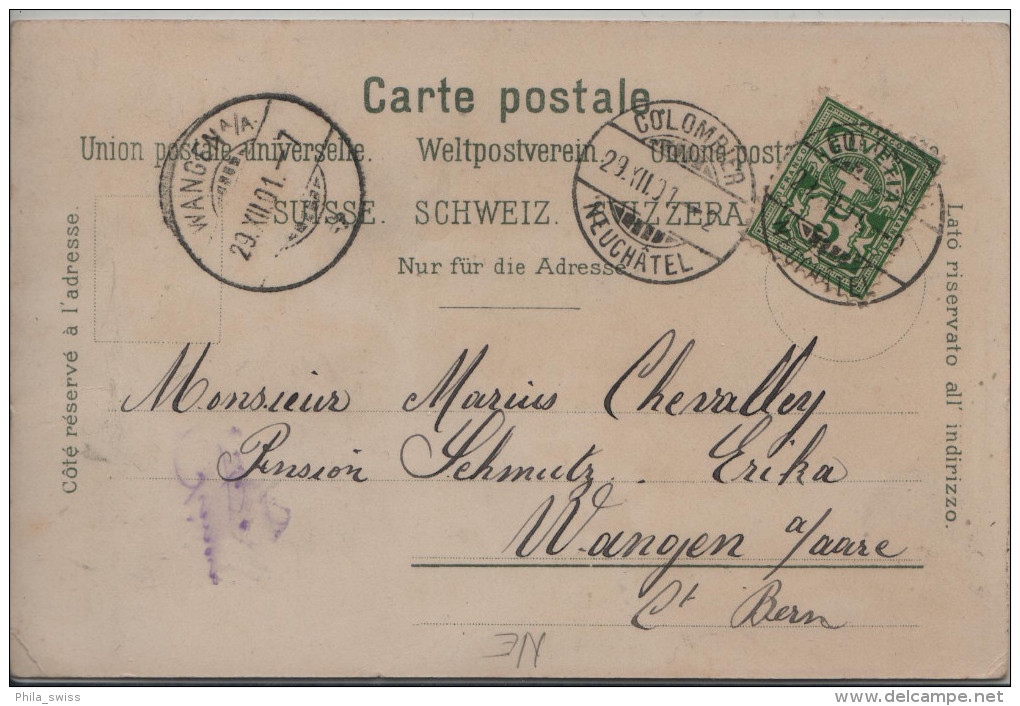 Carte postale.
Union postale universelle. Weltpostverein. Unione posta
SUISSE. SCHWEIZ. SVIZZERA
Nur für die Adresse
Côté réservé à l'adresse.
Lato riservato all' indirizzo.
WANGEN A/A.
29.XII.01.-7
COLOMBIER
29.XII.01
NEUCHÂTEL
HELVETIA
5
Monsieur Marius Chevalley
Pension Schmutz. Erika
Wangen a/aare
Ct Bern
NE
Phila_swiss
www.delcampe.net